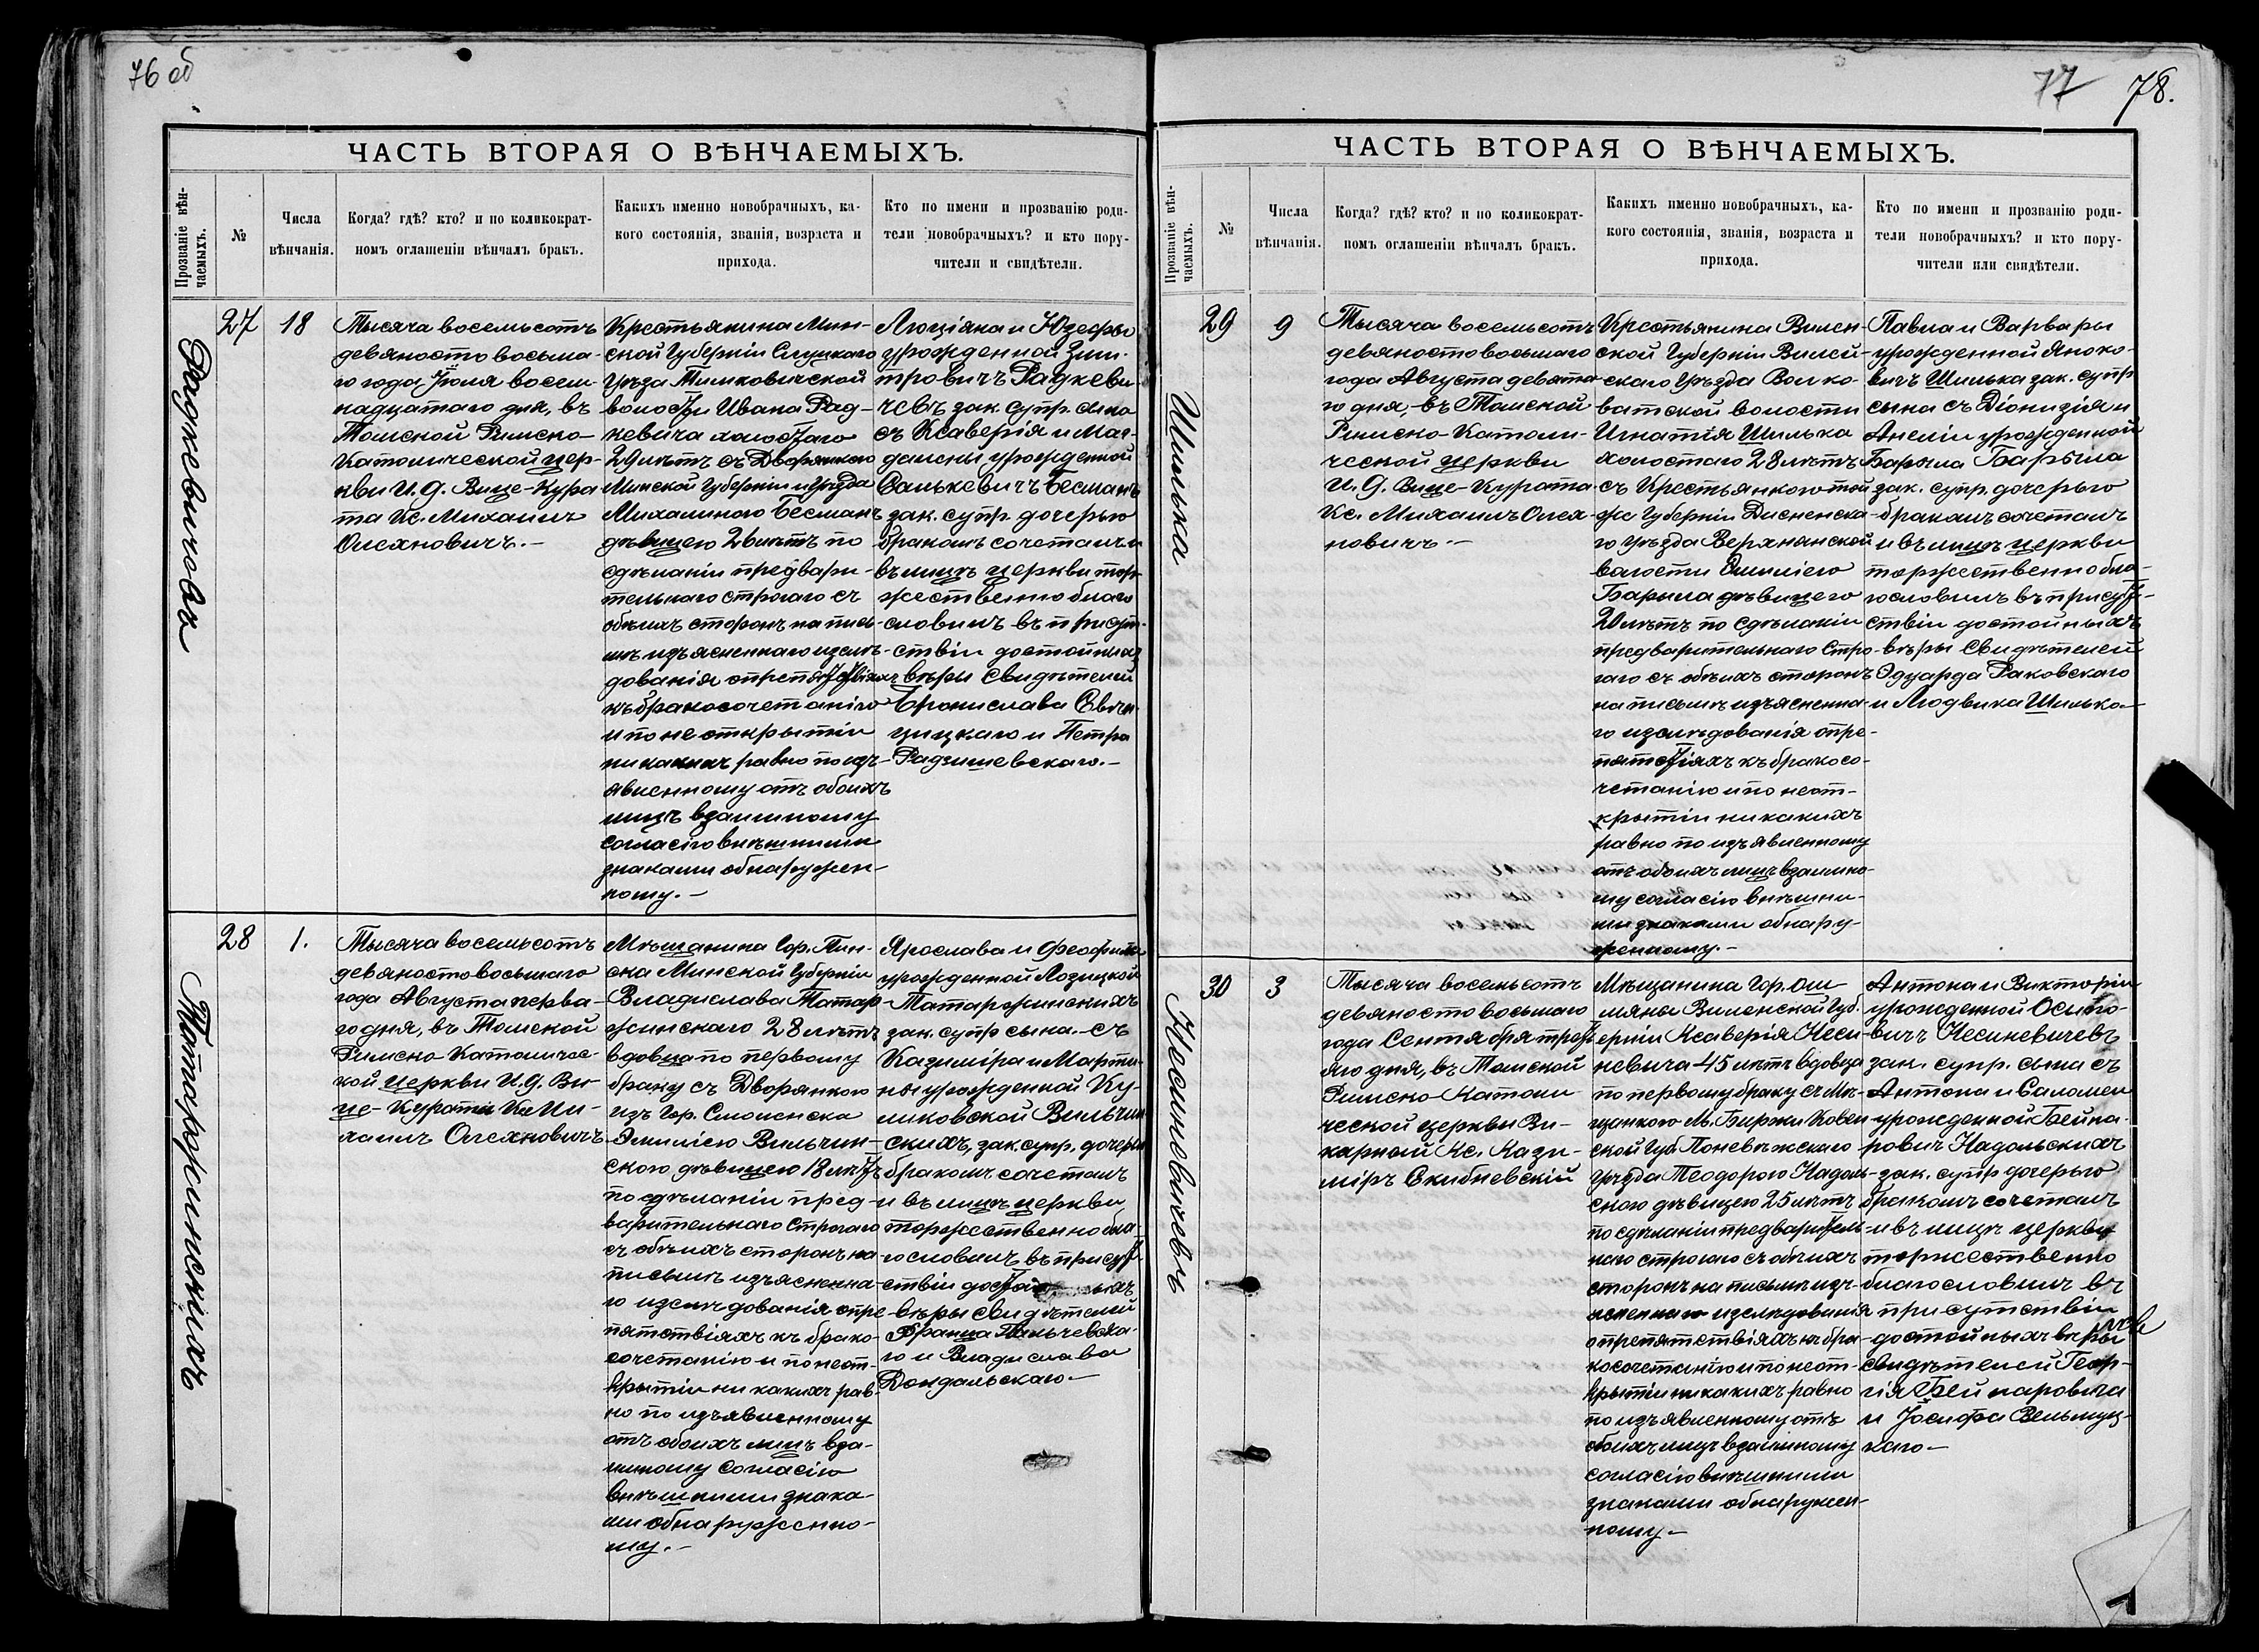 76 об
ЧАСТЬ ВТОРАЯ О ВѢНЧАЕМЫХЪ.
Прозваніе вѣн-
чаемыхъ.
№
Числа
вѣнчанія.
Когда? гдѣ? кто? и по коликократ-
номъ оглашеніи вѣнчалъ бракъ.
Какихъ именно новобрачныхъ, ка-
кого состоянія, званія, возраста и
прихода.
Кто по имени и прозванію роди-
тели новобрачныхъ? и кто пору-
чители и свидѣтели.
Радкевичовъ
27
18
Тысяча восемьсотъ
девяносто восьма-
го года Іюля восем-
надцатаго дня, въ
Томской Римско-
Католической цер-
кви И. д. Вице-Кура
та Кс. Михаилъ
Олехновичъ.-
Крестьянина Мин-
ской Губерніи Слуцкаго
уѣзда Тимковичской
волости Ивана Рад-
кевича холостаго
29 лѣтъ съ Дворянкою
Минской Губерніи и Уѣзда
Михалиною Бесманъ
дѣвицею 26 лѣтъ по
сдѣланіи предвари-
тельнаго строгаго съ
обѣихъ сторонъ на пись-
мѣ изъясненнаго изслѣ-
дованія о препятствіяхъ
къ бракосочетанію
и по не открытіи
никакихъ равно по изъ-
явленному отъ обоихъ
лицъ взаимному
согласію внѣшними
знаками обнаружен-
ному.-
Люціяна и Юзефы
урожденной Зми-
тровичъ Радкеви
чевъ зак. супр. сына
съ Ксаверія и Маг-
далены урожденной
Салькевичъ Бесманъ
зак. супр. дочерью
бракомъ сочеталъ и
въ лицѣ церкви тор-
жественно благо
словилъ въ присут-
ствіи достойныхъ
вѣры свидѣтелей
Бронислава
и Петра
Радзишевскаго.-
Татаржинскихъ
28
1.
Тысяча восемьсотъ
девяносто восьмаго
года Августа перва-
го дня, въ Томской
Римско-Католичес-
кой церкви И. д. Ви-
це-Курата Кс. Ми-
хаилъ Олехновичъ.
Мѣщанина Гор. Пин-
ска Минской Губерніи
Владислава Татар
жинскаго 28 лѣтъ
вдовца по первому
браку съ Дворянкою
изъ Гор. Смоленска
Эмиліею Вильчин-
скою дѣвицею 18 лѣтъ
по сдѣланіи пред-
варительнаго строгаго
съ обѣихъ сторонъ на
письмѣ изъясненна-
го изслѣдованія о пре
пятствіяхъ къ брако-
сочетанію и по неот-
крытіи никакихъ рав-
но по изъявленному
отъ обоихъ лицъ вза-
имному согласію
внѣшними знака-
ми обнаруженно-
му.-
Ярослава и Феофилы
урожденной Лозицкой
Татаржинскихъ
зак. супр сына.- съ
Казиміра и Марти-
ны урожденной Ку-
ликовской Вильчин
скихъ, зак. супр. дочерью
бракомъ сочеталъ
и въ лицѣ церкви
торжественно бла-
гословилъ въ присут
ствіи достойныхъ
вѣры свидѣтелей
Франца
го и Владислава
Дондальскаго.-
77
78.
ЧАСТЬ ВТОРАЯ О ВѢНЧАЕМЫХЪ.
Прозваніе вѣн-
чаемыхъ.
№
Числа
вѣнчанія.
Когда? гдѣ? кто? и по коликократ-
номъ оглашеніи вѣнчалъ бракъ.
Какихъ именно новобрачныхъ, ка-
кого состоянія, званія, возраста и
прихода.
Кто по имени и прозванію роди-
тели новобрачныхъ? и кто пору-
чители или свидѣтели.
Шилька
29
9
Тысяча восемьсотъ
девяносто восьмаго
года Августа девята
го дня, въ Томской
Римско-Католи-
ческой церкви
И. д. Вице-Курата
Кс. Михаилъ Олех-
новичъ.-
Крестьянина Вилен-
ской Губерніи Вилей-
скаго Уѣзда Волко-
латской волости
Игнатія Шилька
холостаго 28 лѣтъ
съ Крестьянкою той
же Губерніи Дисненска-
го Уѣзда Верхнянской
волости Эмиліею
Барыла дѣвицею
20 лѣтъ по сдѣланіи
предварительнаго стро-
гаго съ обѣихъ сторонъ
на письмѣ изъясненна-
го изслѣдованія о пре-
пятствіяхъ къ бракосо-
четанію и по неот-
крытіи никакихъ
равно по изъявленному
отъ обоихъ лицъ взаимно-
му согласію внѣшни-
ми знаками обнару-
женному.-
Павла и Варвары
урожденной Яноко-
вичъ Шилька зак. супр
сына съ Діонизія и
Анеліи урожденной
Барыла Барыла
зак. супр. дочерью
бракомъ сочеталъ
и въ лицѣ церкви
торжественно бла-
гословилъ въ присут-
ствіи достойныхъ
вѣры свидѣтелей
Эдуарда Раковскаго
и Людвика Шилько.-
Несиневичевъ
30
3
Тысяча восемьсотъ
девяносто восьмаго
года Сентября треть
яго дня, въ Томской
Римско-Католи
ческой церкви Ви-
карной Кс. Кази-
міръ Скибневскій
Мѣщанина Гор. Ош
мяны Виленской Губ.
ерніи Ксаверія Неси-
невича 45 лѣтъ вдовца
по первому браку съ Мѣ-
щанкою М. Биржи Ковен
ской Губ. Поневѣжскаго
Уѣзда Теодорою Надоль-
скою дѣвицею 25 лѣтъ
по сдѣланіи предваритель-
наго строгаго съ обѣихъ
сторонъ на письмѣ изъ-
ясненнаго изслѣдованія
о препятствіяхъ къ бра-
косочетанію и по неот-
крытіи никакихъ равно
по изъявленному отъ
обоихъ лицъ взаимному
согласію внѣшними
знаками обнаружен-
ному.-
Антона и Викторіи
урожденной Осипо-
вичъ Несиневичевъ
зак. супр. сына съ
Антона и Саломеи
урожденной Бейна-
ровичъ Надольскихъ
зак. супр дочерью
бракомъ сочеталъ
и въ лицѣ церкви
торжественно
благословилъ въ
присутствіи
достойныхъ вѣры
свидѣтелей Геор-
гія Бейнаровича
и Іосифа Вельмуц-
каго.-